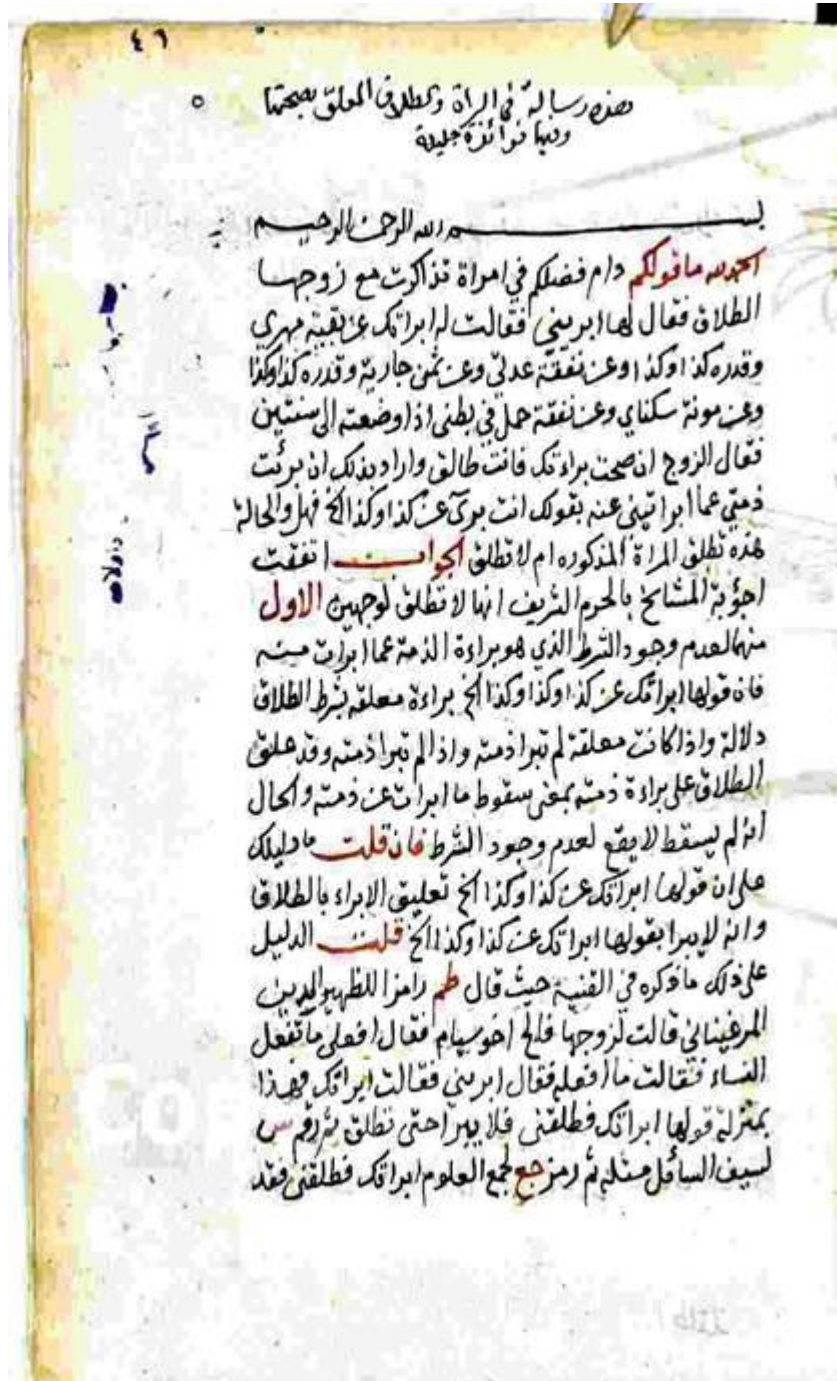 ٤٦
هذه رسالة في البراة والطلاق المعلق بصحتها
وفيها فوائد جليلة
بسم الله الرحمن الرحيم
الحمد لله ما قولكم دام فضلكم في امراة تذاكرت مع زوجها
الطلاق فقال لها ابريني فقالت له ابراتك عن بقية مهري
وقدره كذا وكذا وعن نفقة عدتي وعن ثمن جارية وقدره كذا وكذا
وعن مونة سكناي وعن نفقة حمل في بطني اذا وضعته الى سنتين
فقال الزوج ان صحت براءتك فانت طالق واراد بذلك ان برئت
ذمتي عما ابراتيني عنه بقولك انت بري عن كذا وكذا الخ فهل والحالة
هذه تطلق المراة المذكوره ام لا تطلق الجواب اتفقت
اجوبة المشائخ بالحرم الشريف انها لا تطلق لوجهين الاول
منهما لعدم وجود الشرط الذي هو براءة الذمة عما ابرات منه
فان قولها ابراتك عن كذا وكذا وكذا الخ براءة معلقة بشرط الطلاق
دلالة واذا كانت معلقة لم تبرا ذمته واذا لم تبرا ذمته وقد علق
الطلاق على براءة ذمته بمعنى سقوط ما ابرات عن ذمته والحال
انه لم يسقط لا يقع لعدم وجود الشرط فان قلت ما دليلك
على ان قولها ابراتك عن كذا وكذا الخ تعليق الابراء بالطلاق
وانه لا يبرا بقولها ابراتك عن كذا وكذا الخ قلت الدليل
على ذلك ما ذكره في القنية حيث قال ظم رامزا للظهير الدين
المرغيناني قالت لزوجها فقال افعلي ما تفعل
النساء فقالت ما افعله فقال ابريني فقالت ابراتك فهذا
بمنزلة قولها ابراتك فطلقني فلا يبرا حتى تطلق ثم رقم س
لسيف السائل مثله ثم رمز جع لجمع العلوم ابراتك فطلقني فقد